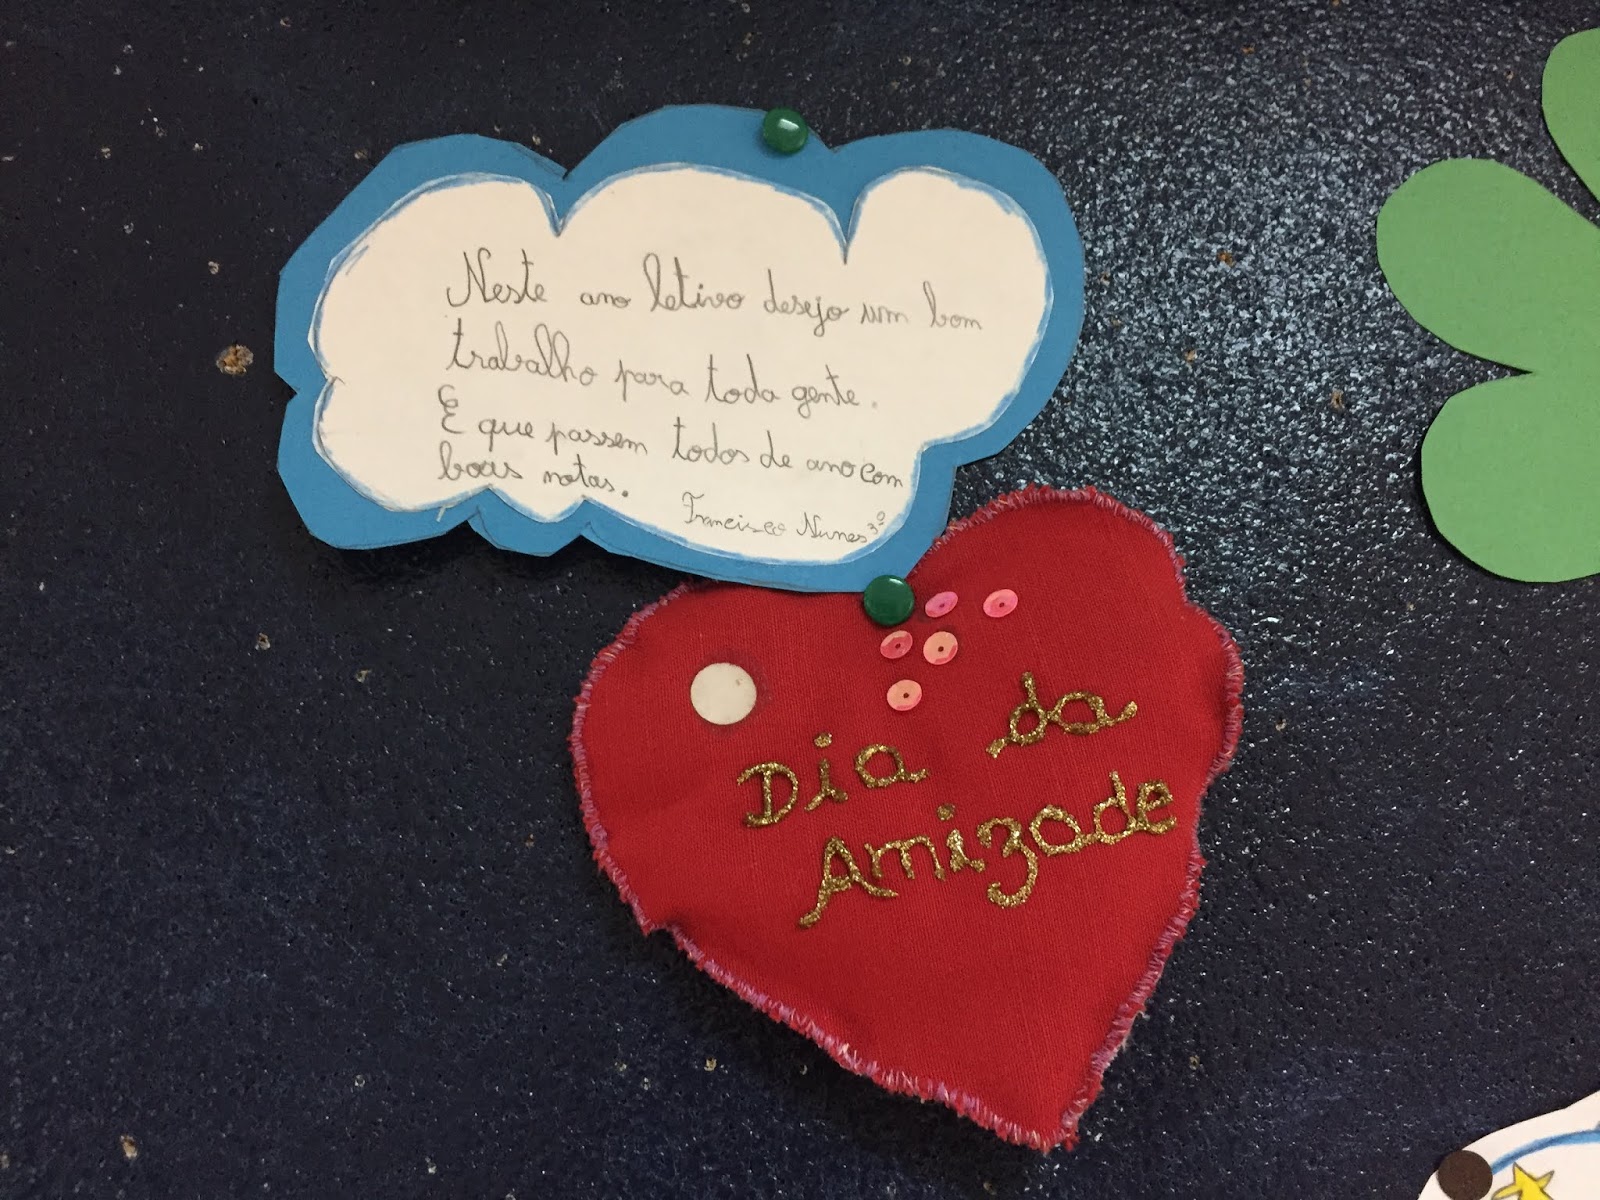 Neste ano letivo desejo um bom
trabalho para toda gente.
E que passem todos de ano com
boas notas.
Francisco Nunes 3º
Dia da
Amizade